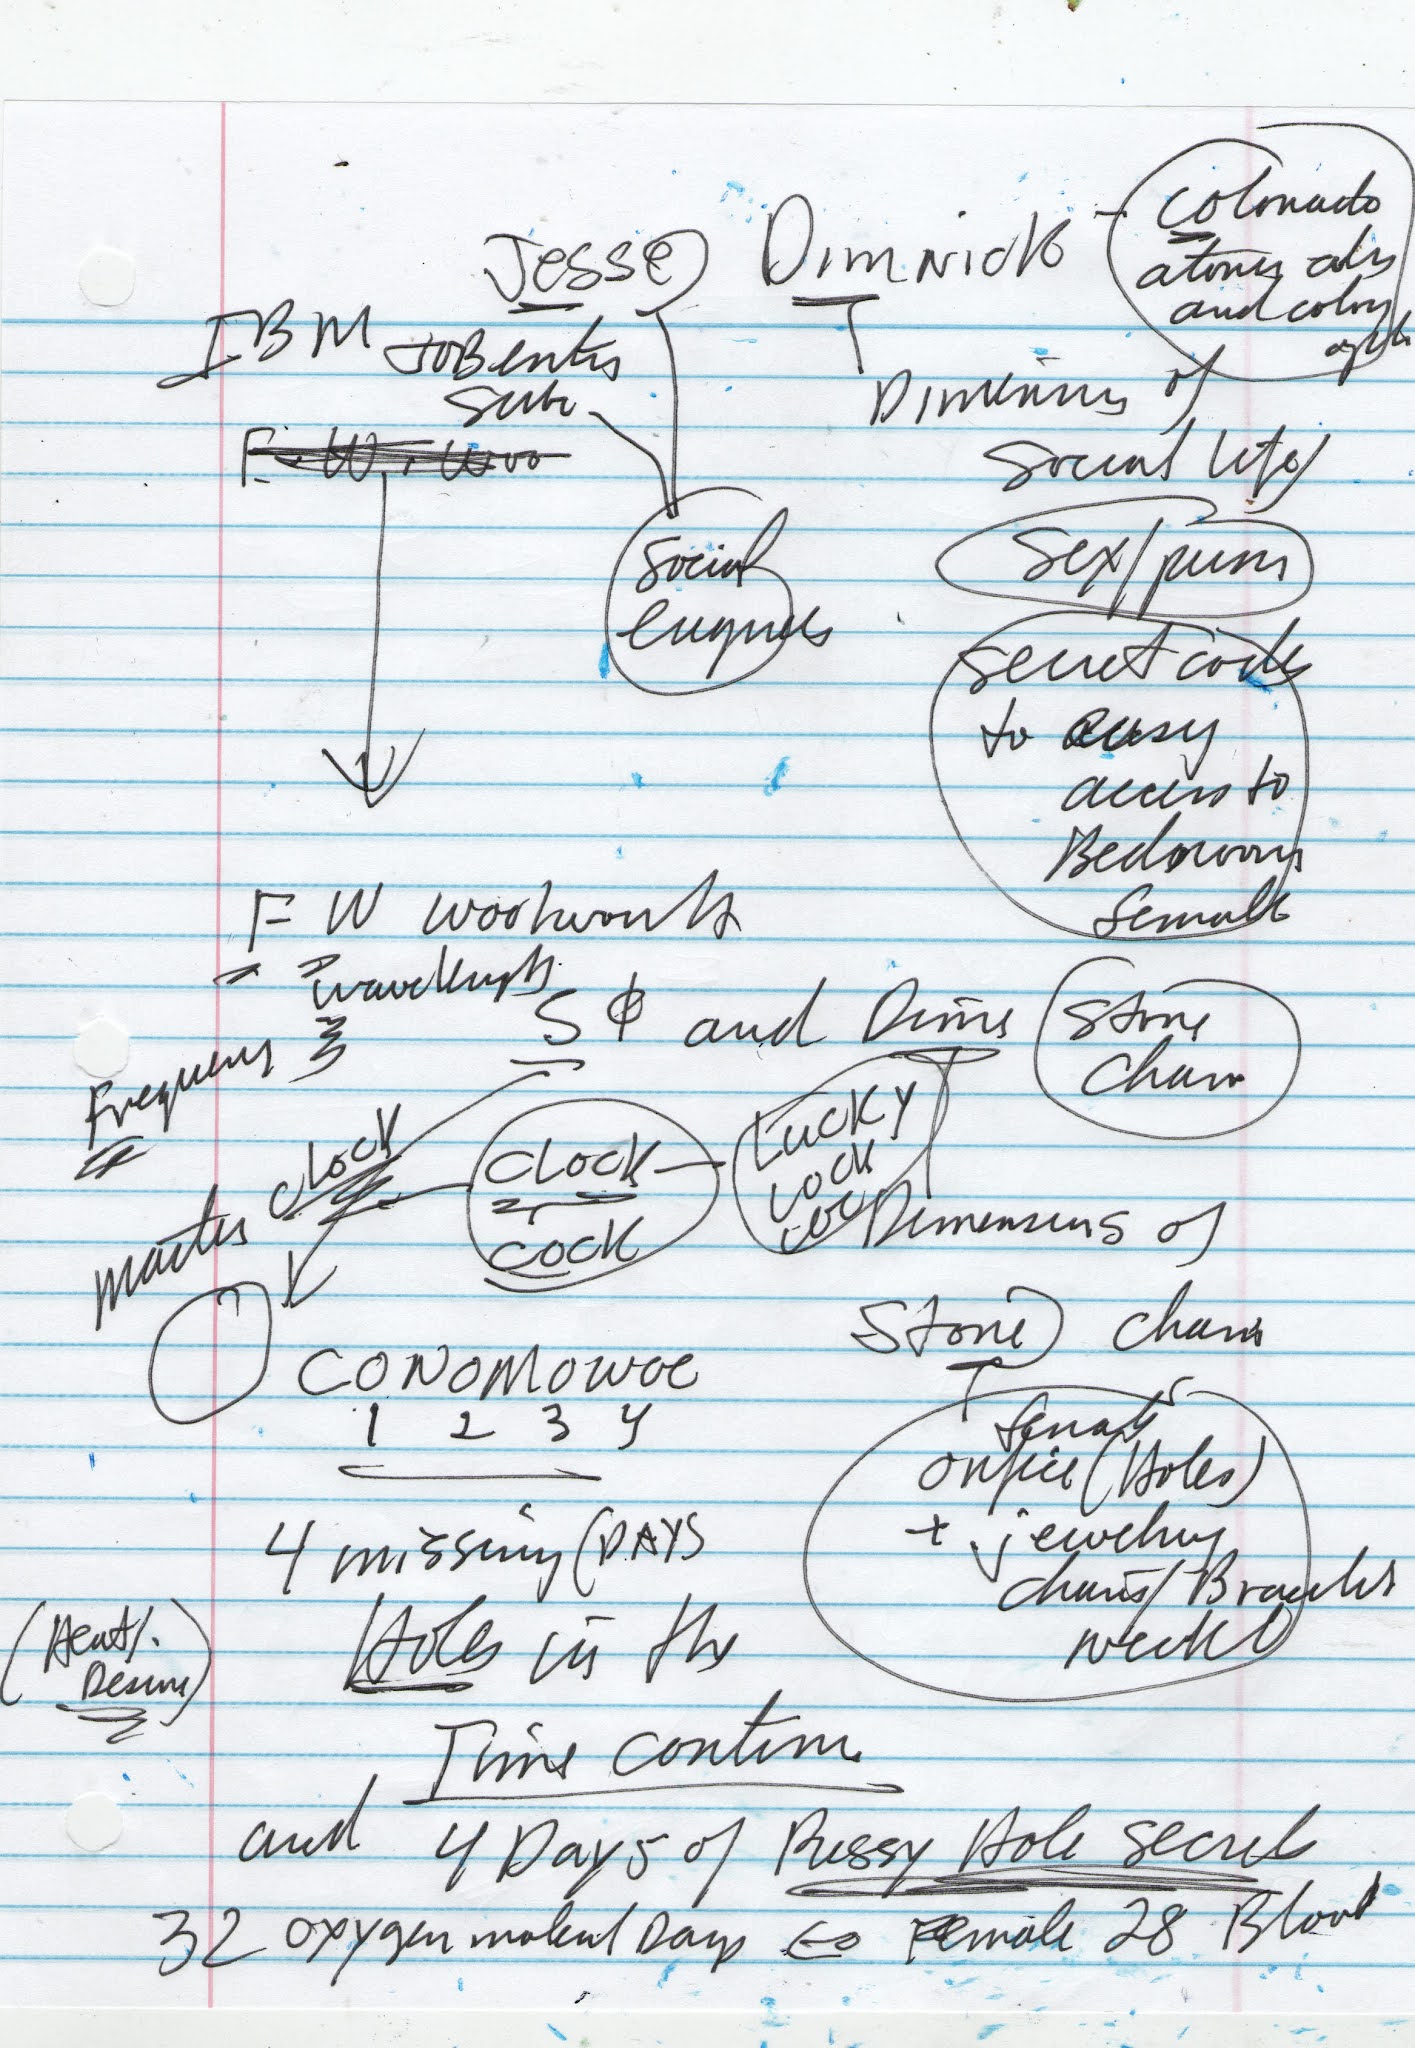 Jesse Dimnick - Colorado
atoms
and colony
IBM JOB entry
Subs
F. W. Woo
Dimensions of
Social life
Social
enzymes
Sex/
secret codes
to easy
access to
Bedrooms
female
F W Woolworth
wavelength
Frequency
5 ¢ and Dime
Stone
Chain
Master Clock
CLOCK
COCK
LUCKY
LOCK
Dimensions of
Stone Chain
CONOMOWOC
1 2 3 4
female
orifice (Holes)
+ jewelry
chains/Bracelet
neckl
4 missing (DAYS
Holes in the
(Heart/.
Desire)
Time continu
and 4 Days of Pussy Hole secrets
32 oxygen molecul Days Female 28 Blood